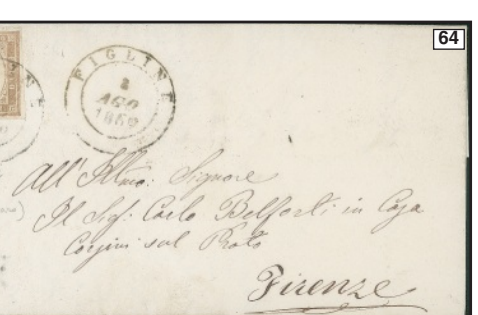 64
FIGLINE
2
AGO
1860
All' Illmo: Signore
Il Sigr: Carlo Belforti in Casa
Corsini sul Prato
Firenze